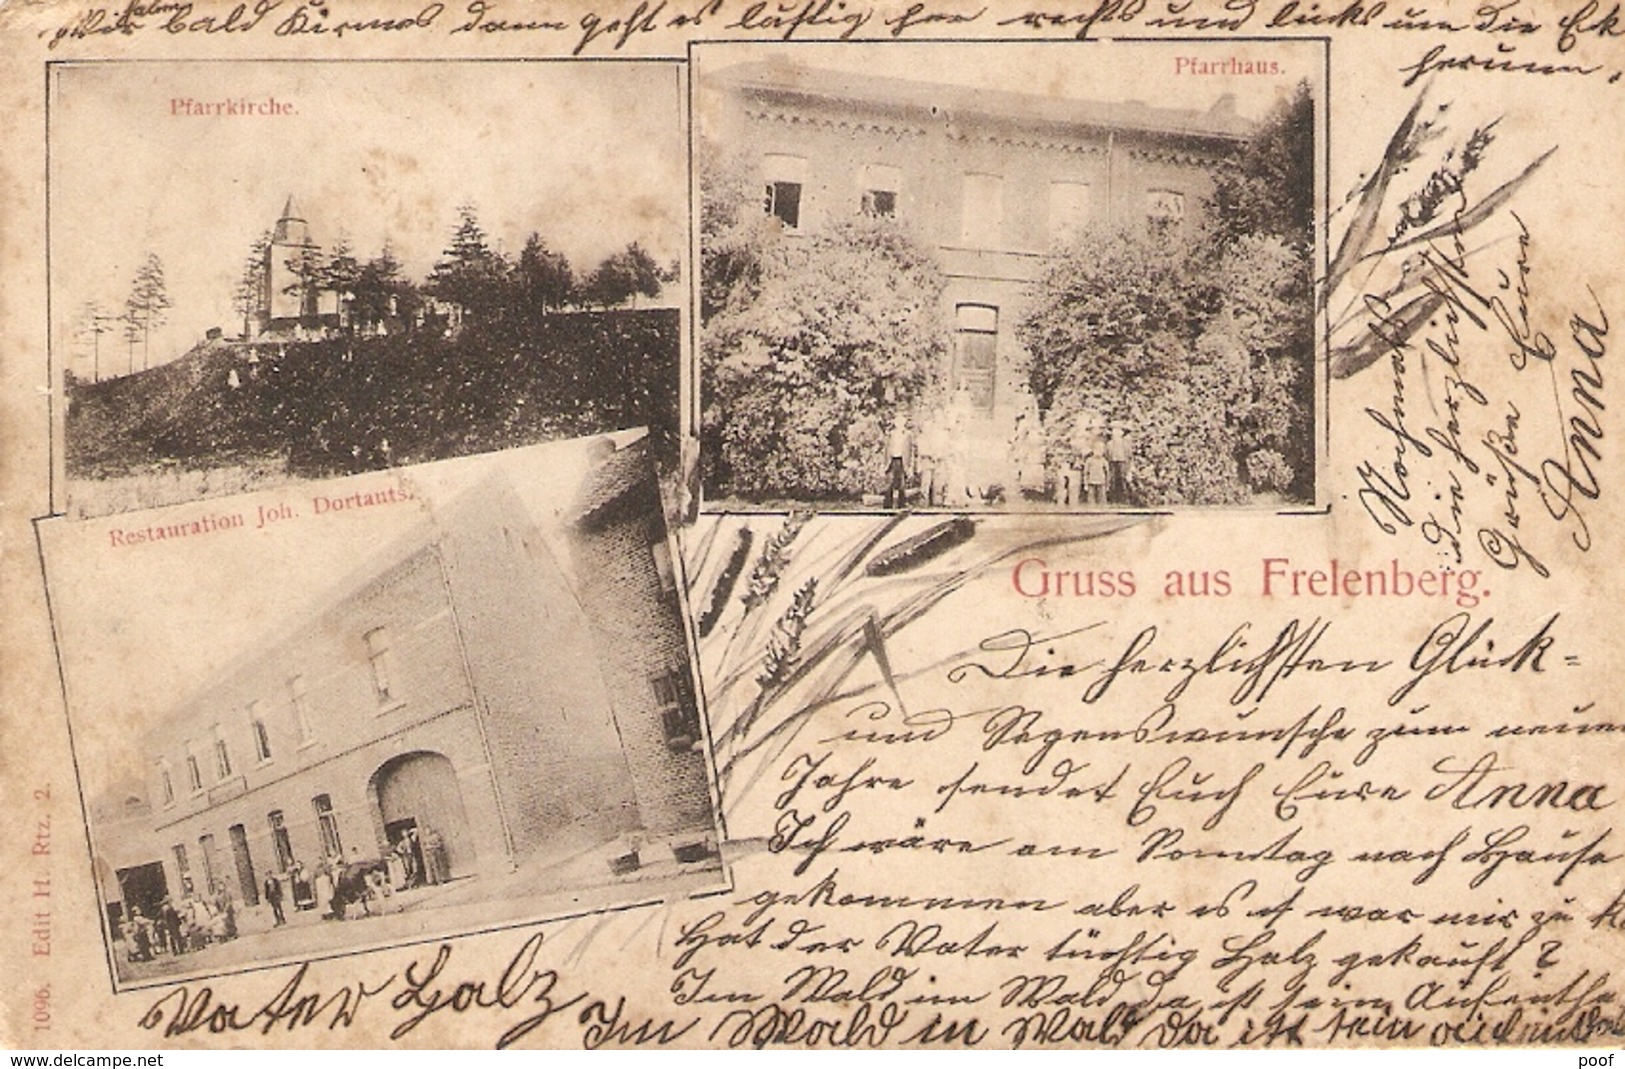 Wir haben bald Kirmes dann geht es lustig her rechts und links um die Eck
herum.
Pfarrkirche.
Pfarrhaus.
Restauration Joh. Dortants.
Nochmals
die herzlichsten
Grüße Eure
Anna
Gruss aus Frelenberg.
Die herzlichsten Glück=
und Segenswünsche zum neuen
Jahre sendet Euch Eure Anna
Ich wäre am Sonntag nach Hause
gekommen aber es war mir zu
Hat der Vater tüchtig Holz gekauft?
Im Wald im Wald da ist sein Aufentha
Vater Holz
Im Wald im Wald da ist sein
1096. Edit H. Rtz. 2.
www.delcampe.net
poof